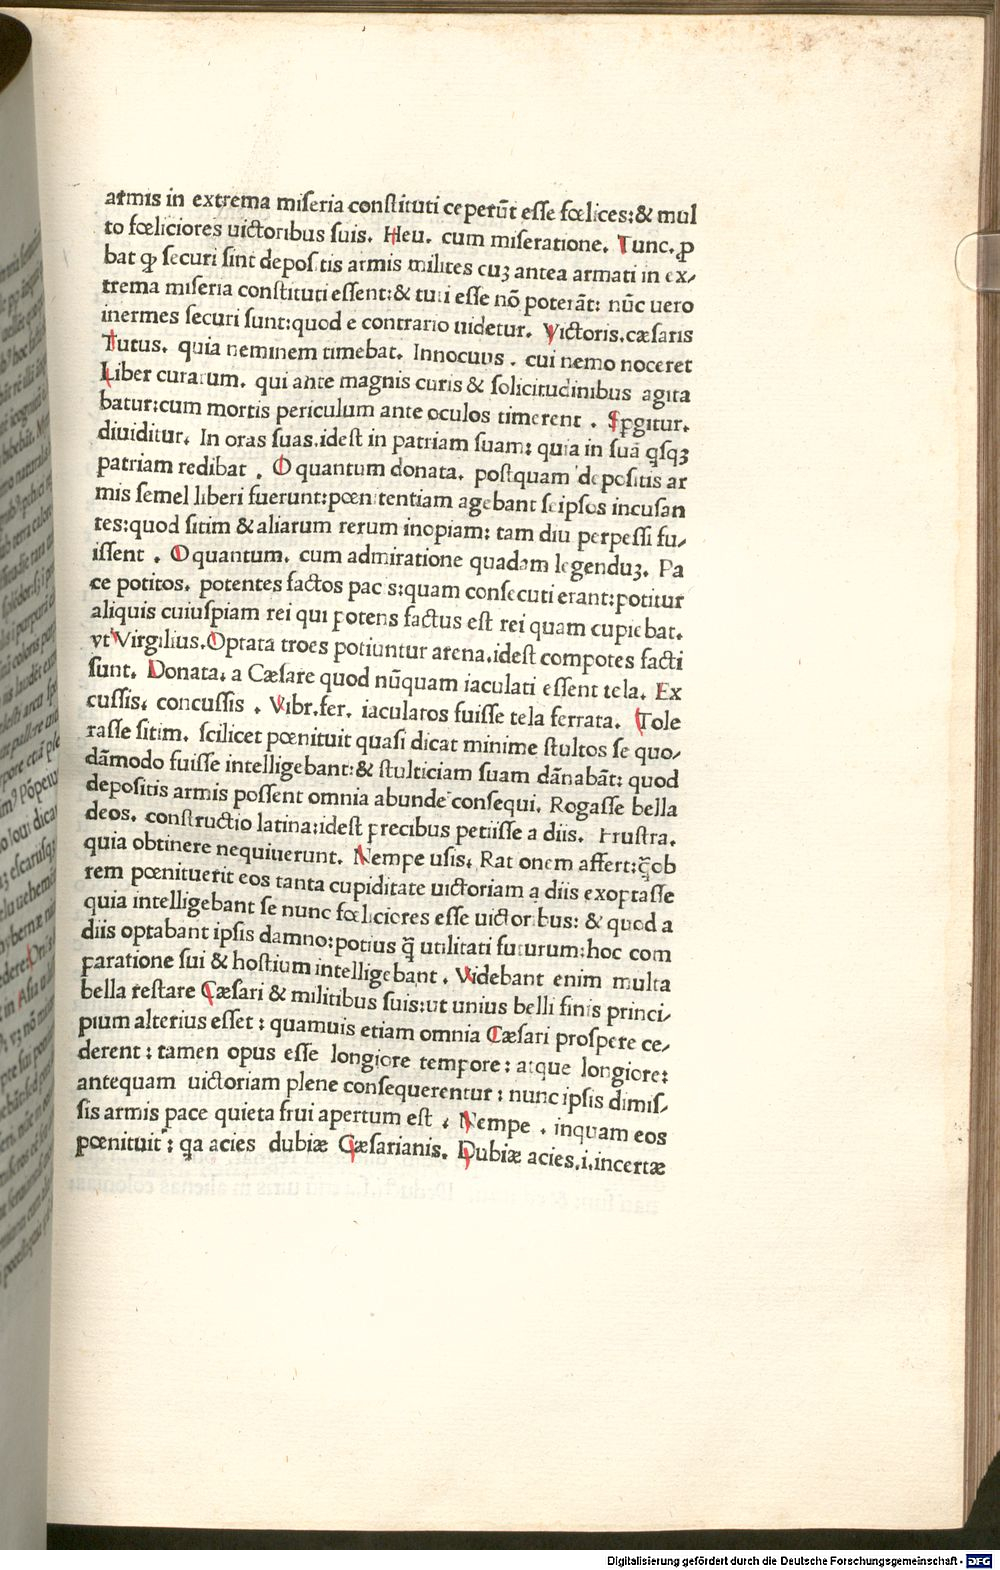 armis in extrema miſeria conſtituti ceperūt eſſe fœlices:& mul
to fœliciores uictoribus ſuis. Heu. cum miſeratione. Tunc. ꝓ
bat ꝙ ſecuri ſint depoſitis armis milites cuꝫ antea armati in ex/
trema miſeria conſtituti eſſent:& tuti eſſe nō poterāt: nūc uero
inermes ſecuri ſunt:quod e contrario uidetur. Victoris.cæſaris
Tutus. quia neminem timebat. Innocuus . cui nemo noceret
Liber curarum. qui ante magnis curis & ſolicitudinibus agita
batur:cum mortis periculum ante oculos timerent . Spgitur.
diuiditur. In oras ſuas.ideſt in patriam ſuam: quia in ſuā qſqꝫ
patriam redibat . O quantum donata. poſtquam depoſitis ar
mis ſemel liberi fuerunt:pœnitentiam agebant ſeipſos incuſan
tes:quod ſitim & aliarum rerum inopiam: tam diu perpeſſi fu/
iſſent . O quantum. cum admiratione quadam legenduꝫ. Pa
ce potitos. potentes factos pacis:quam conſecuti erant:potitur
aliquis cuiuſpiam rei qui potens factus eſt rei quam cupiebat.
vt Virgilius.Optata troes potiuntur arena.ideſt compotes facti
ſunt. Donata. a Cæſare quod nūquam iaculati eſſent tela. Ex
cuſſis. concuſſis . Vibr.fer. iaculatos fuiſſe tela ferrata. Tole
raſſe ſitim. ſcilicet pœnituit quaſi dicat minime ſtultos ſe quo/
dāmodo fuiſſe intelligebant:& ſtulticiam ſuam dānabāt: quod
depoſitis armis poſſent omnia abunde conſequi. Rogaſſe bella
deos. conſtructio latina:ideſt precibus petiiſſe a diis. Fruſtra.
quia obtinere nequiuerunt. Nempe uſis. Rationem affert:q̄ob
rem pœnituerit eos tanta cupiditate uictoriam a diis exoptaſſe
quia intelligebant ſe nunc fœliciores eſſe uictoribus: & quod a
diis optabant ipſis damno:potius q̄ utilitati futurum:hoc com
paratione ſui & hoſtium intelligebant . Videbant enim multa
bella reſtare Cæſari & militibus ſuis:ut unius belli finis princi/
pium alterius eſſet : quamuis etiam omnia Cæſari proſpere ce/
derent : tamen opus eſſe longiore tempore : atque longiore:
antequam uictoriam plene conſequerentur : nunc ipſis dimiſ/
ſis armis pace quieta frui apertum eſt . Nempe . inquam eos
pœnituit : qa acies dubiæ Cæſarianis. Dubiæ acies.i.incertæ
Digitalisierung gefördert durch die Deutsche Forschungsgemeinschaft - DFG